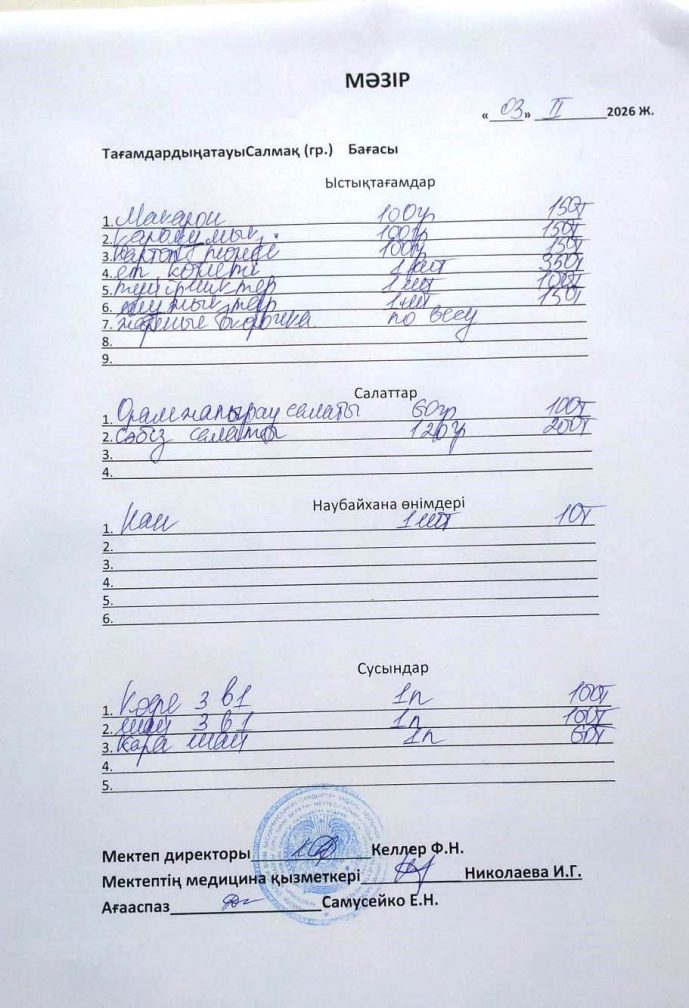 МӘЗІР
« 03 » II 2026 Ж.
ТағамдардыңатауыСалмақ (гр.) Бағасы
Ыстықтағамдар
1. Макарон 100гр 150т
2. Қарақұмық 100гр 150т
3. Картоп пюреси 100гр 150т
4. ет котлеті 1 шт 350т
5. 1 шт 100т
6. 1 шт 150т
7. по весу
8.
9.
Салаттар
1. Орамжапырақ салаты 60гр 100т
2. сәбіз салаты 120гр 200т
3.
4.
Наубайхана өнімдері
1. Нан 1 шт 10т
2.
3.
4.
5.
6.
Сусындар
1. Кофе 3 в1 1п 100т
2. шай 3 в1 1п 100т
3. қара шай 1п 60т
4.
5.
Мектеп директоры Келлер Ф.Н.
Мектептің медицина қызметкері Николаева И.Г.
Ағааспаз Самусейко Е.Н.